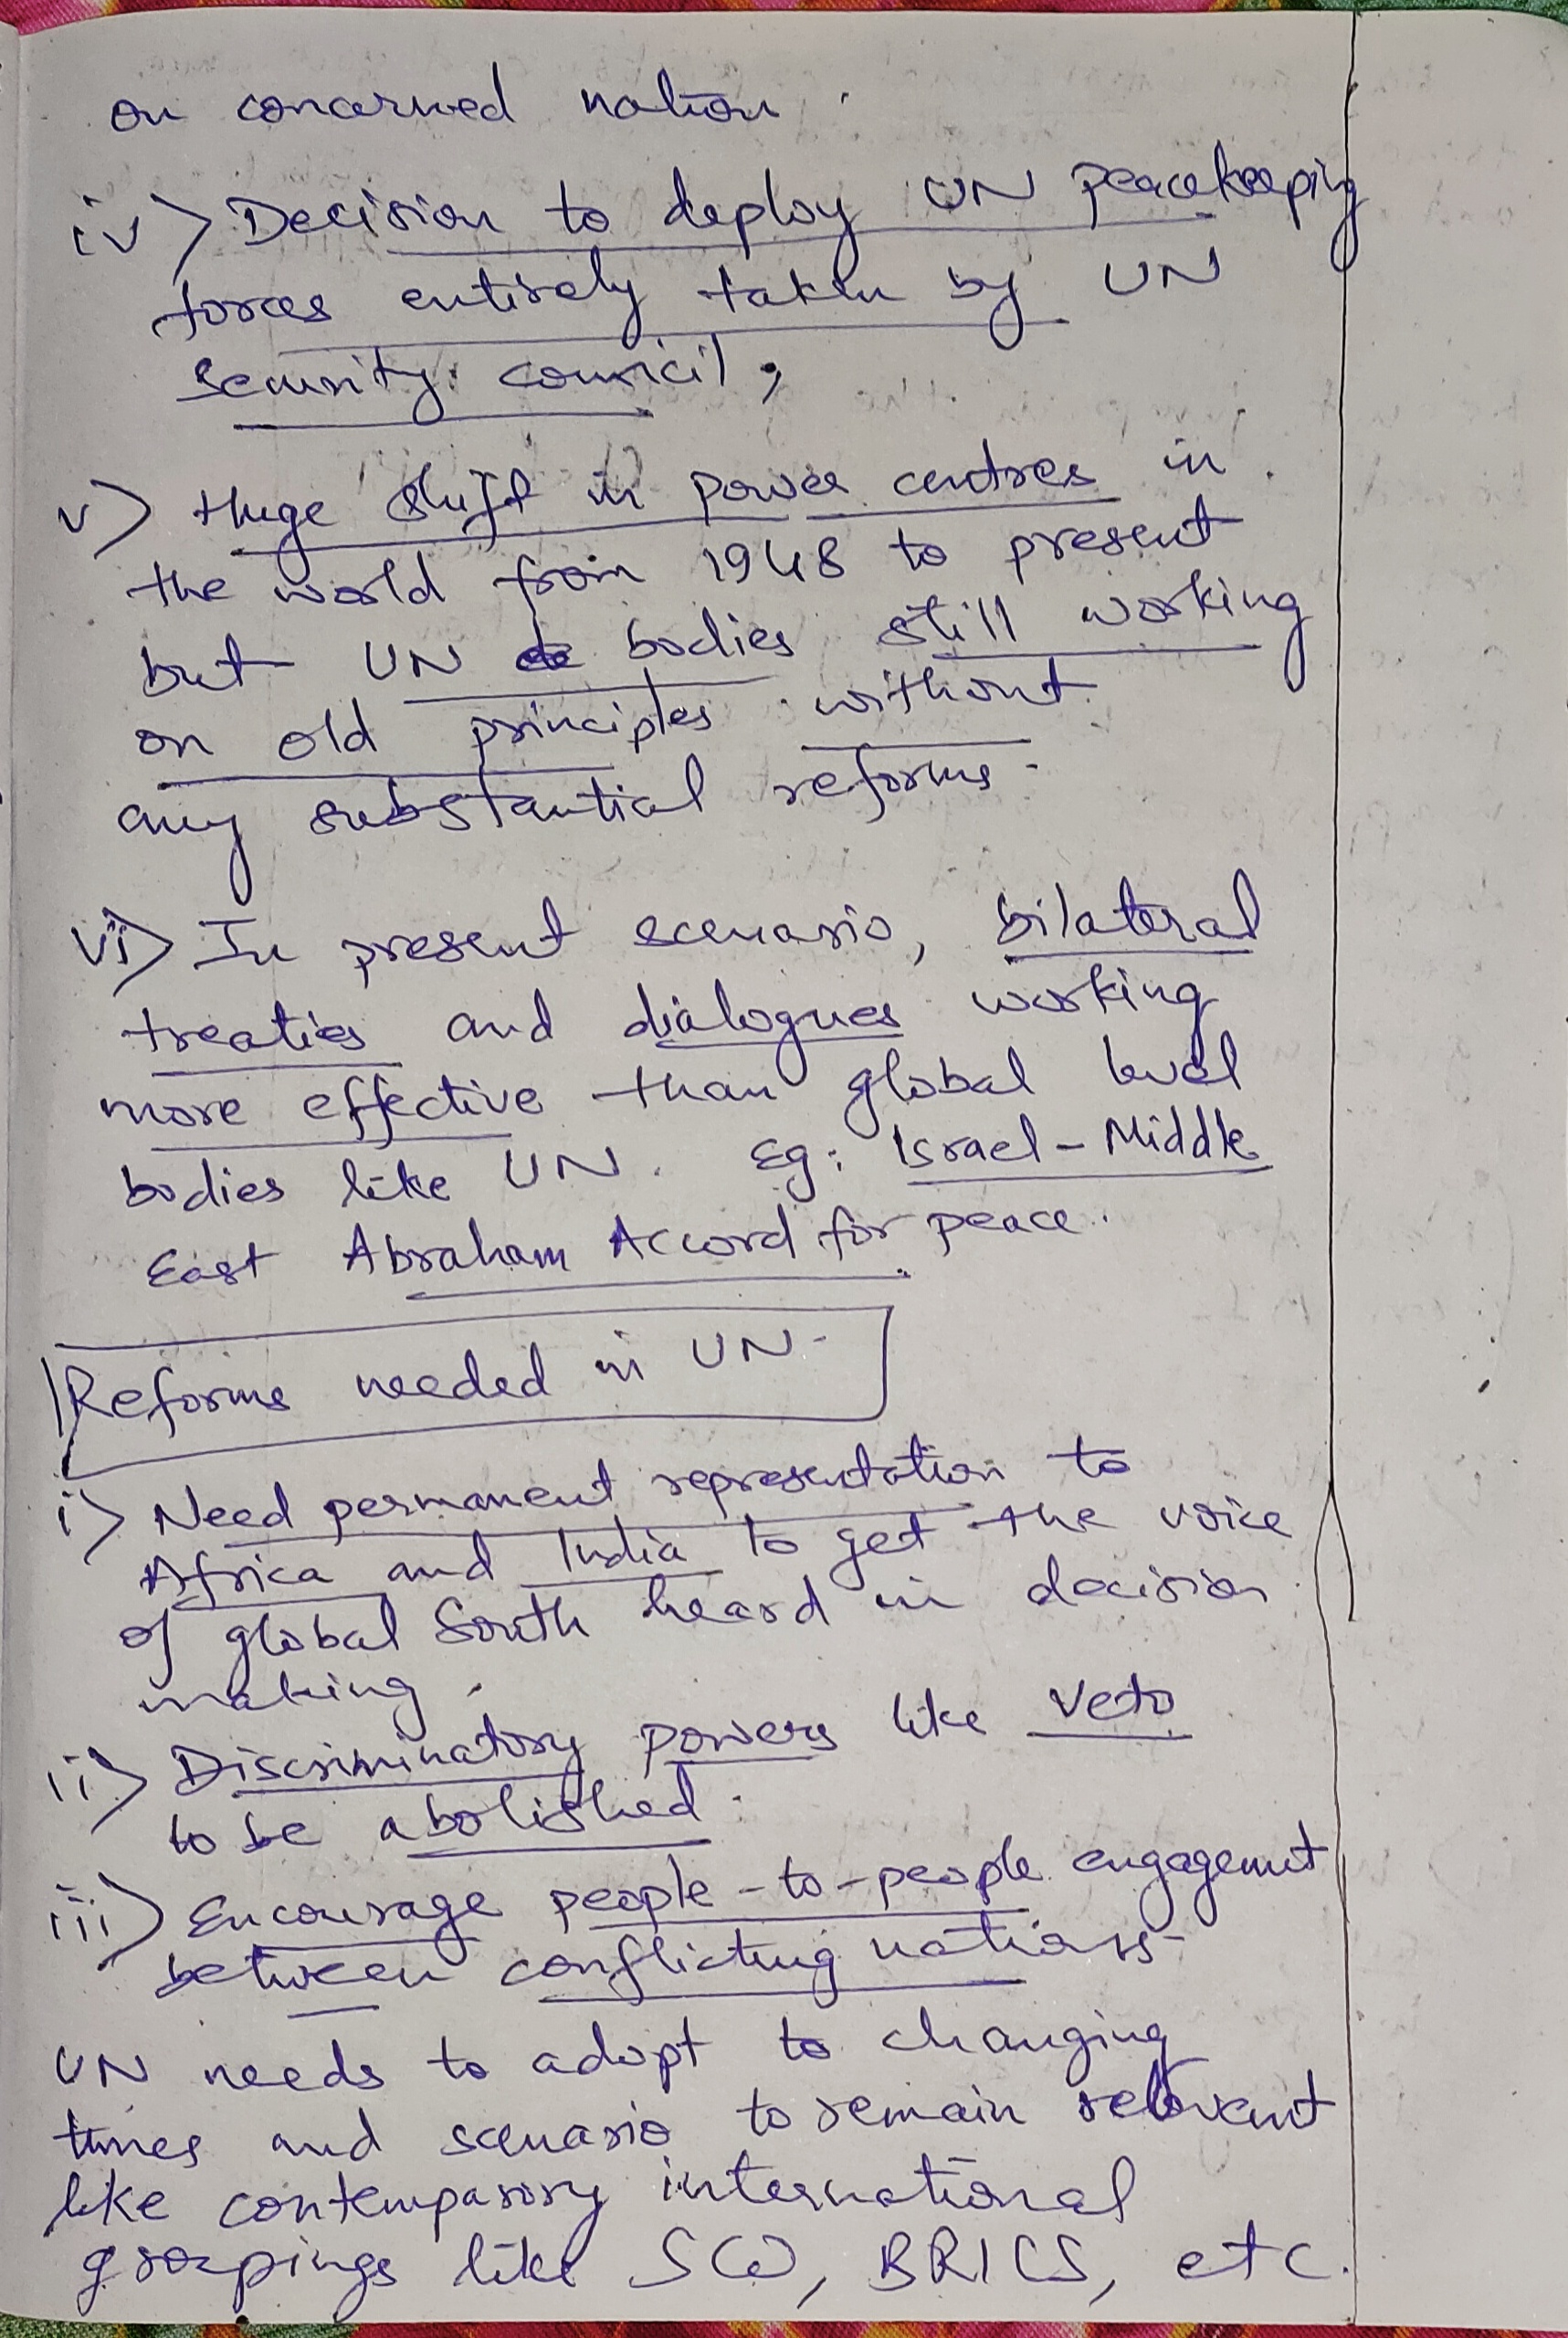 on concerned nation.
iv> Decision to deploy UN peacekeeping
forces entirely taken by UN
Security council,
v> Huge shift in power centres in
the world from 1948 to present
but UN bodies still working
on old principles without
any substantial reforms.
vi> In present scenario, bilateral
treaties and dialogues working
more effective than global level
bodies like UN. Eg: Israel-Middle
East Abraham Accord for peace.
Reforms needed in UN-
i> Need permanent representation to
Africa and India to get the voice
of global South heard in decision
making.
ii> Discriminatory powers like veto
to be abolished.
iii> Encourage people-to-people engagement
between conflicting nations.
UN needs to adopt to changing
times and scenario to remain relevant
like contemparory international
groupings like SCO, BRICS, etc.